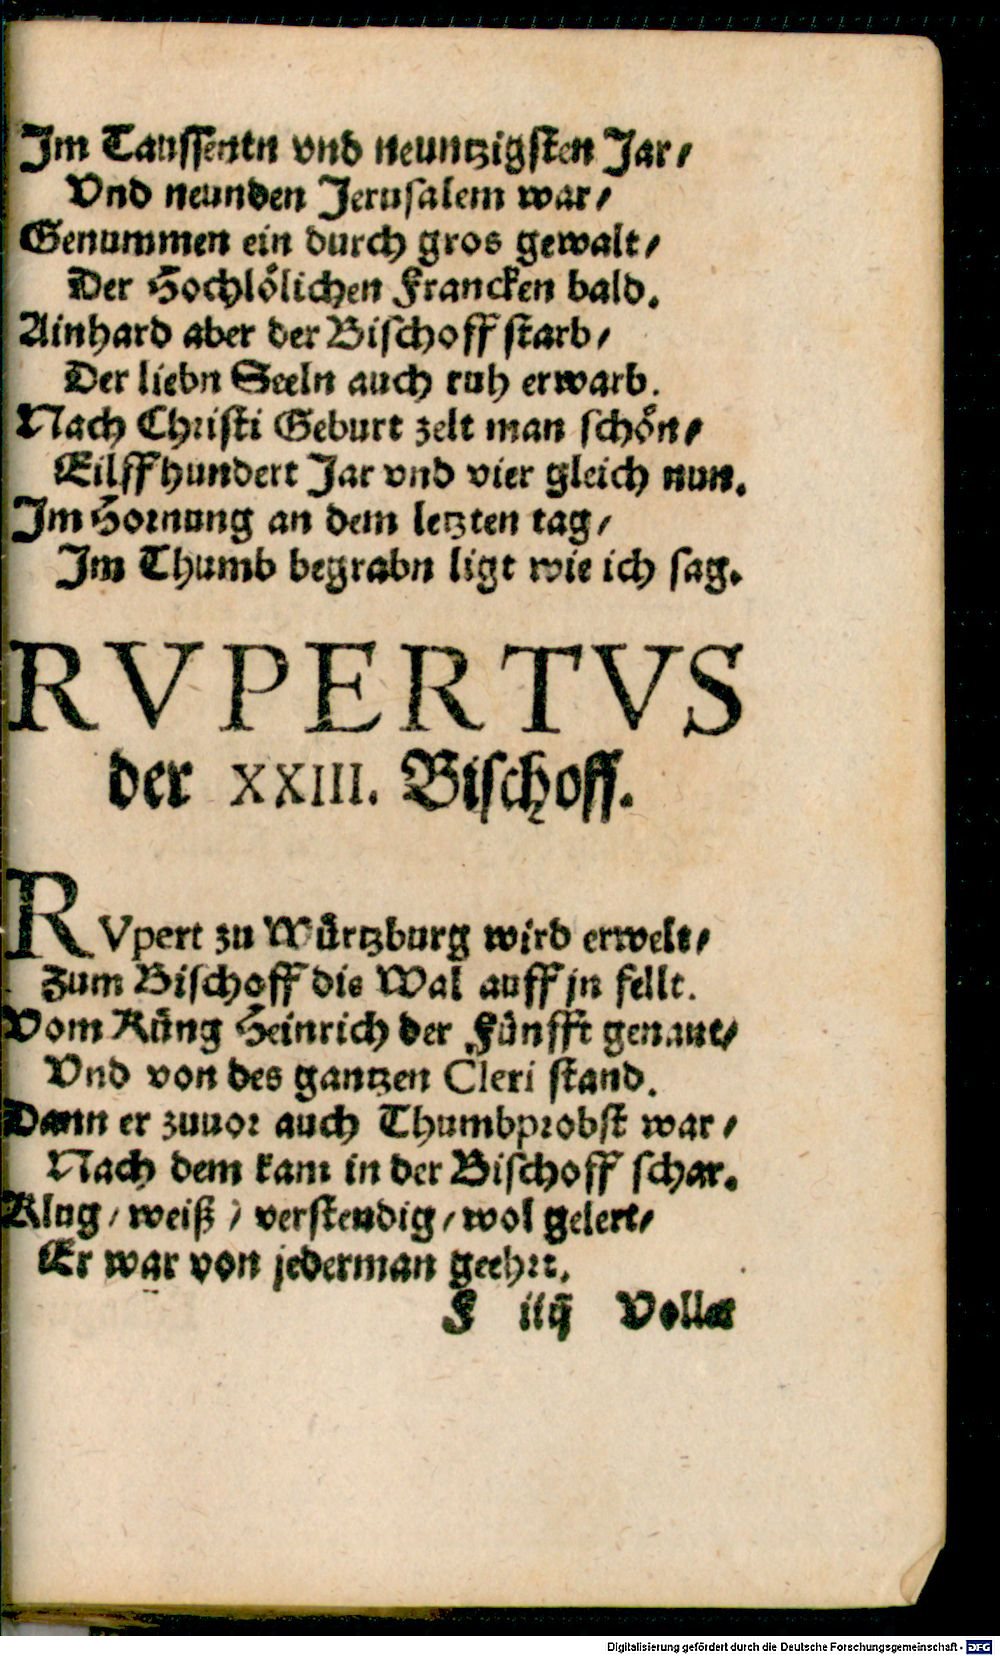 Im Taussentn vnd neuntzigsten Jar/
Vnd neunden Jerusalem war/
Genummen ein durch gros gewalt/
Der Hochlölichen Francken bald.
Ainhard aber der Bischoff starb/
Der liebn Seeln auch ruh erwarb.
Nach Christi Geburt zelt man schön/
Eilffhundert Jar vnd vier gleich nun.
Im Hornung an dem letzten tag/
Im Thumb begrabn ligt wie ich sag.
RVPERTVS
der XXIII. Bischoff.
RVpert zu Würtzburg wird erwelt/
Zum Bischoff die Wal auff jn fellt.
Vom Küng Heinrich der Fünfft genant/
Vnd von des gantzen Cleri stand.
Dann er zuuor auch Thumbprobst war/
Nach dem kam in der Bischoff schar.
Klug/ weiß/ verstendig/ wol gelert/
Er war von jederman geehrt.
F iiij Voller
Digitalisierung gefördert durch die Deutsche Forschungsgemeinschaft - DFG